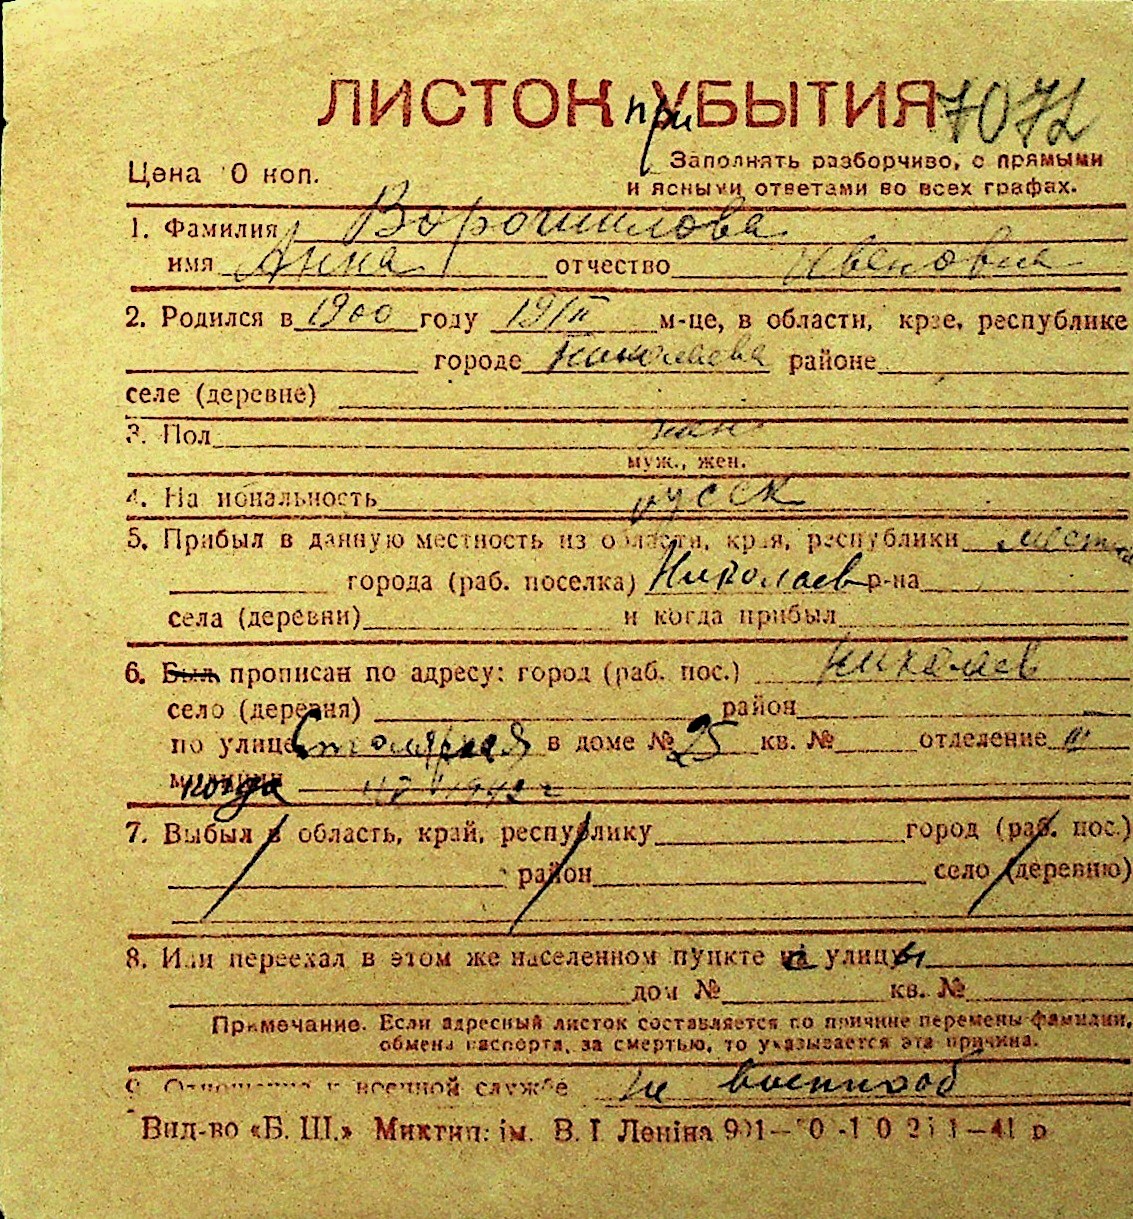 ЛИСТОК при УБЫТИЯ 7072
Цена 0 коп. Заполнять разборчиво, с прямыми
и ясными ответами во всех графах.
1. Фамилия Ворошилова
имя Анна отчество Ивановна
2. Родился в 1900 году 19/II м-це, в области, крае, республике
городе Николаеве районе
селе (деревне)
3. Пол жен
муж., жен.
4. Национальность русск
5. Прибыл в данную местность из области, края, республики местн
города (раб. поселка) Николаев р-на
села (деревни) и когда прибыл
6. Был прописан по адресу: город (раб. пос.) Николаев
село (деревня) район
по улице Столярная в доме № 25 кв. № отделение III
милиции когда 1942 г
7. Выбыл в область, край, республику город (раб. пос.)
район село (деревню)
8. Или переехал в этом же населенном пункте с улицы
дом № кв. №
Примечание. Если адресный листок составляется по причине перемены фамилии,
обмена паспорта, за смертью, то указывается эта причина.
9. Отношение к военной службе не военнооб
Вид-во «Б. Ш.» Миктип: ім. В. І Леніна